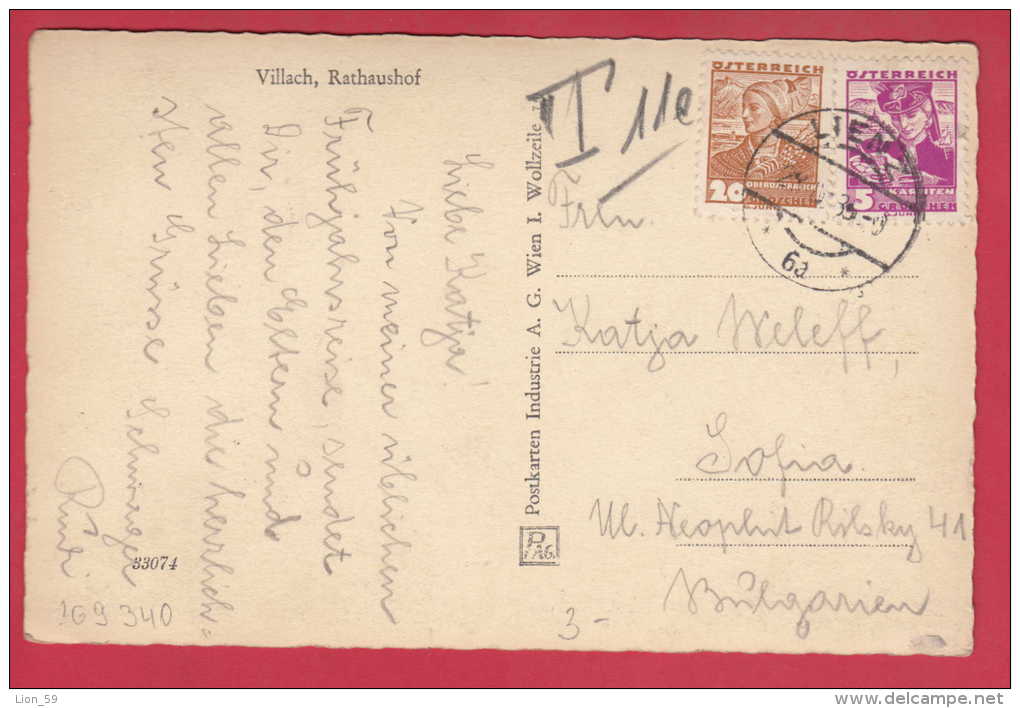 Villach, Rathaushof
Liebe Katja!
Von meiner üblichen
Frühjahrsreise, sendet
Dir, den Eltern und
allen Lieben die herrlich=
sten Grüsse
33074
169 340
3-
Postkarten Industrie A. G. Wien I. Wollzeile
PAG.
T 11c
ÖSTERREICH
20
OBERÖSTERREICH
GROSCHEN
ÖSTERREICH
5
KÄRNTEN
GROSCHEN
LIENZ
6a
Frln.
Katja Weleff,
Sofia.
Ul. Neophit Rilsky 41
Bulgarien
Lion_59
delcampe.net